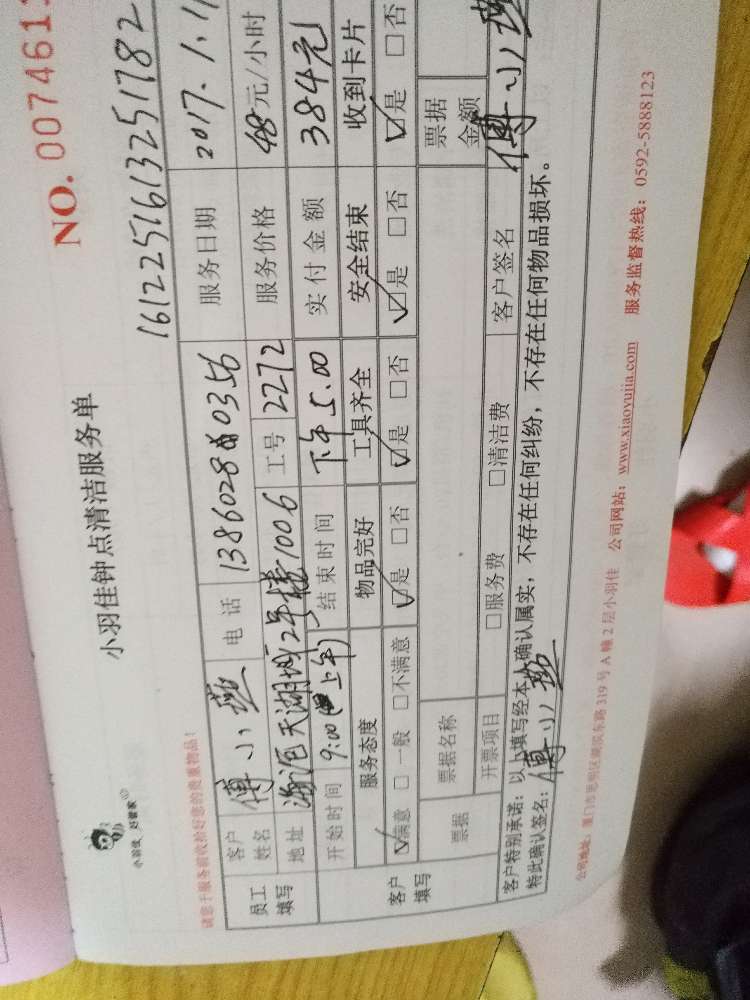 小羽佳 好管家
小羽佳钟点清洁服务单
NO. 0074613
1612251613251782
请您于服务前收拾好您的贵重物品!
员工填写 客户姓名 傅小燕 电话 13860280356 服务日期 2017.1.11
地址 天湖城2号楼1006 工号 2272 服务价格 48元/小时
开始时间 9:00(上午) 结束时间 下午5.00 实付金额 384元
客户填写 服务态度 物品完好 工具齐全 安全结束 收到卡片
☑满意 □一般 □不满意 ☑是 □否 ☑是 □否 ☑是 □否 ☑是 □否
票据 票据名称 票据金额
开票项目 □服务费 □清洁费 客户签名 傅小燕
客户特别承诺:以上填写经本人确认属实,不存在任何纠纷,不存在任何物品损坏。
特此确认签名:傅小燕
公司地址:厦门市思明区湖滨东路319号A幢2层小羽佳 公司网站:www.xiaoyujia.com 服务监督热线:0592-5888123